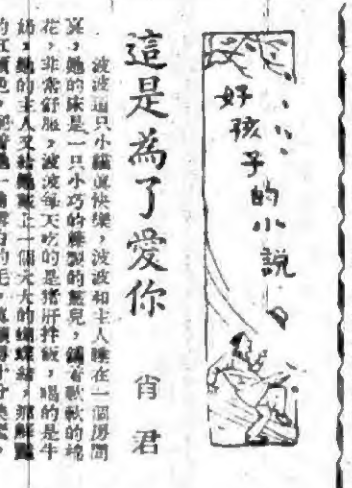 好孩子的小説
這是為了愛你
肖君
波波這只小貓真快樂，波波和主人睡在一個房間
裏，她的床是一只小巧的籐製的籃兒，鋪着軟軟的棉
花，非常舒服，波波每天吃的是猪肝拌飯，喝的是牛
奶，她的主人又給她戴上一個大大的蝴蝶結，那鮮豔
的紅顏色，